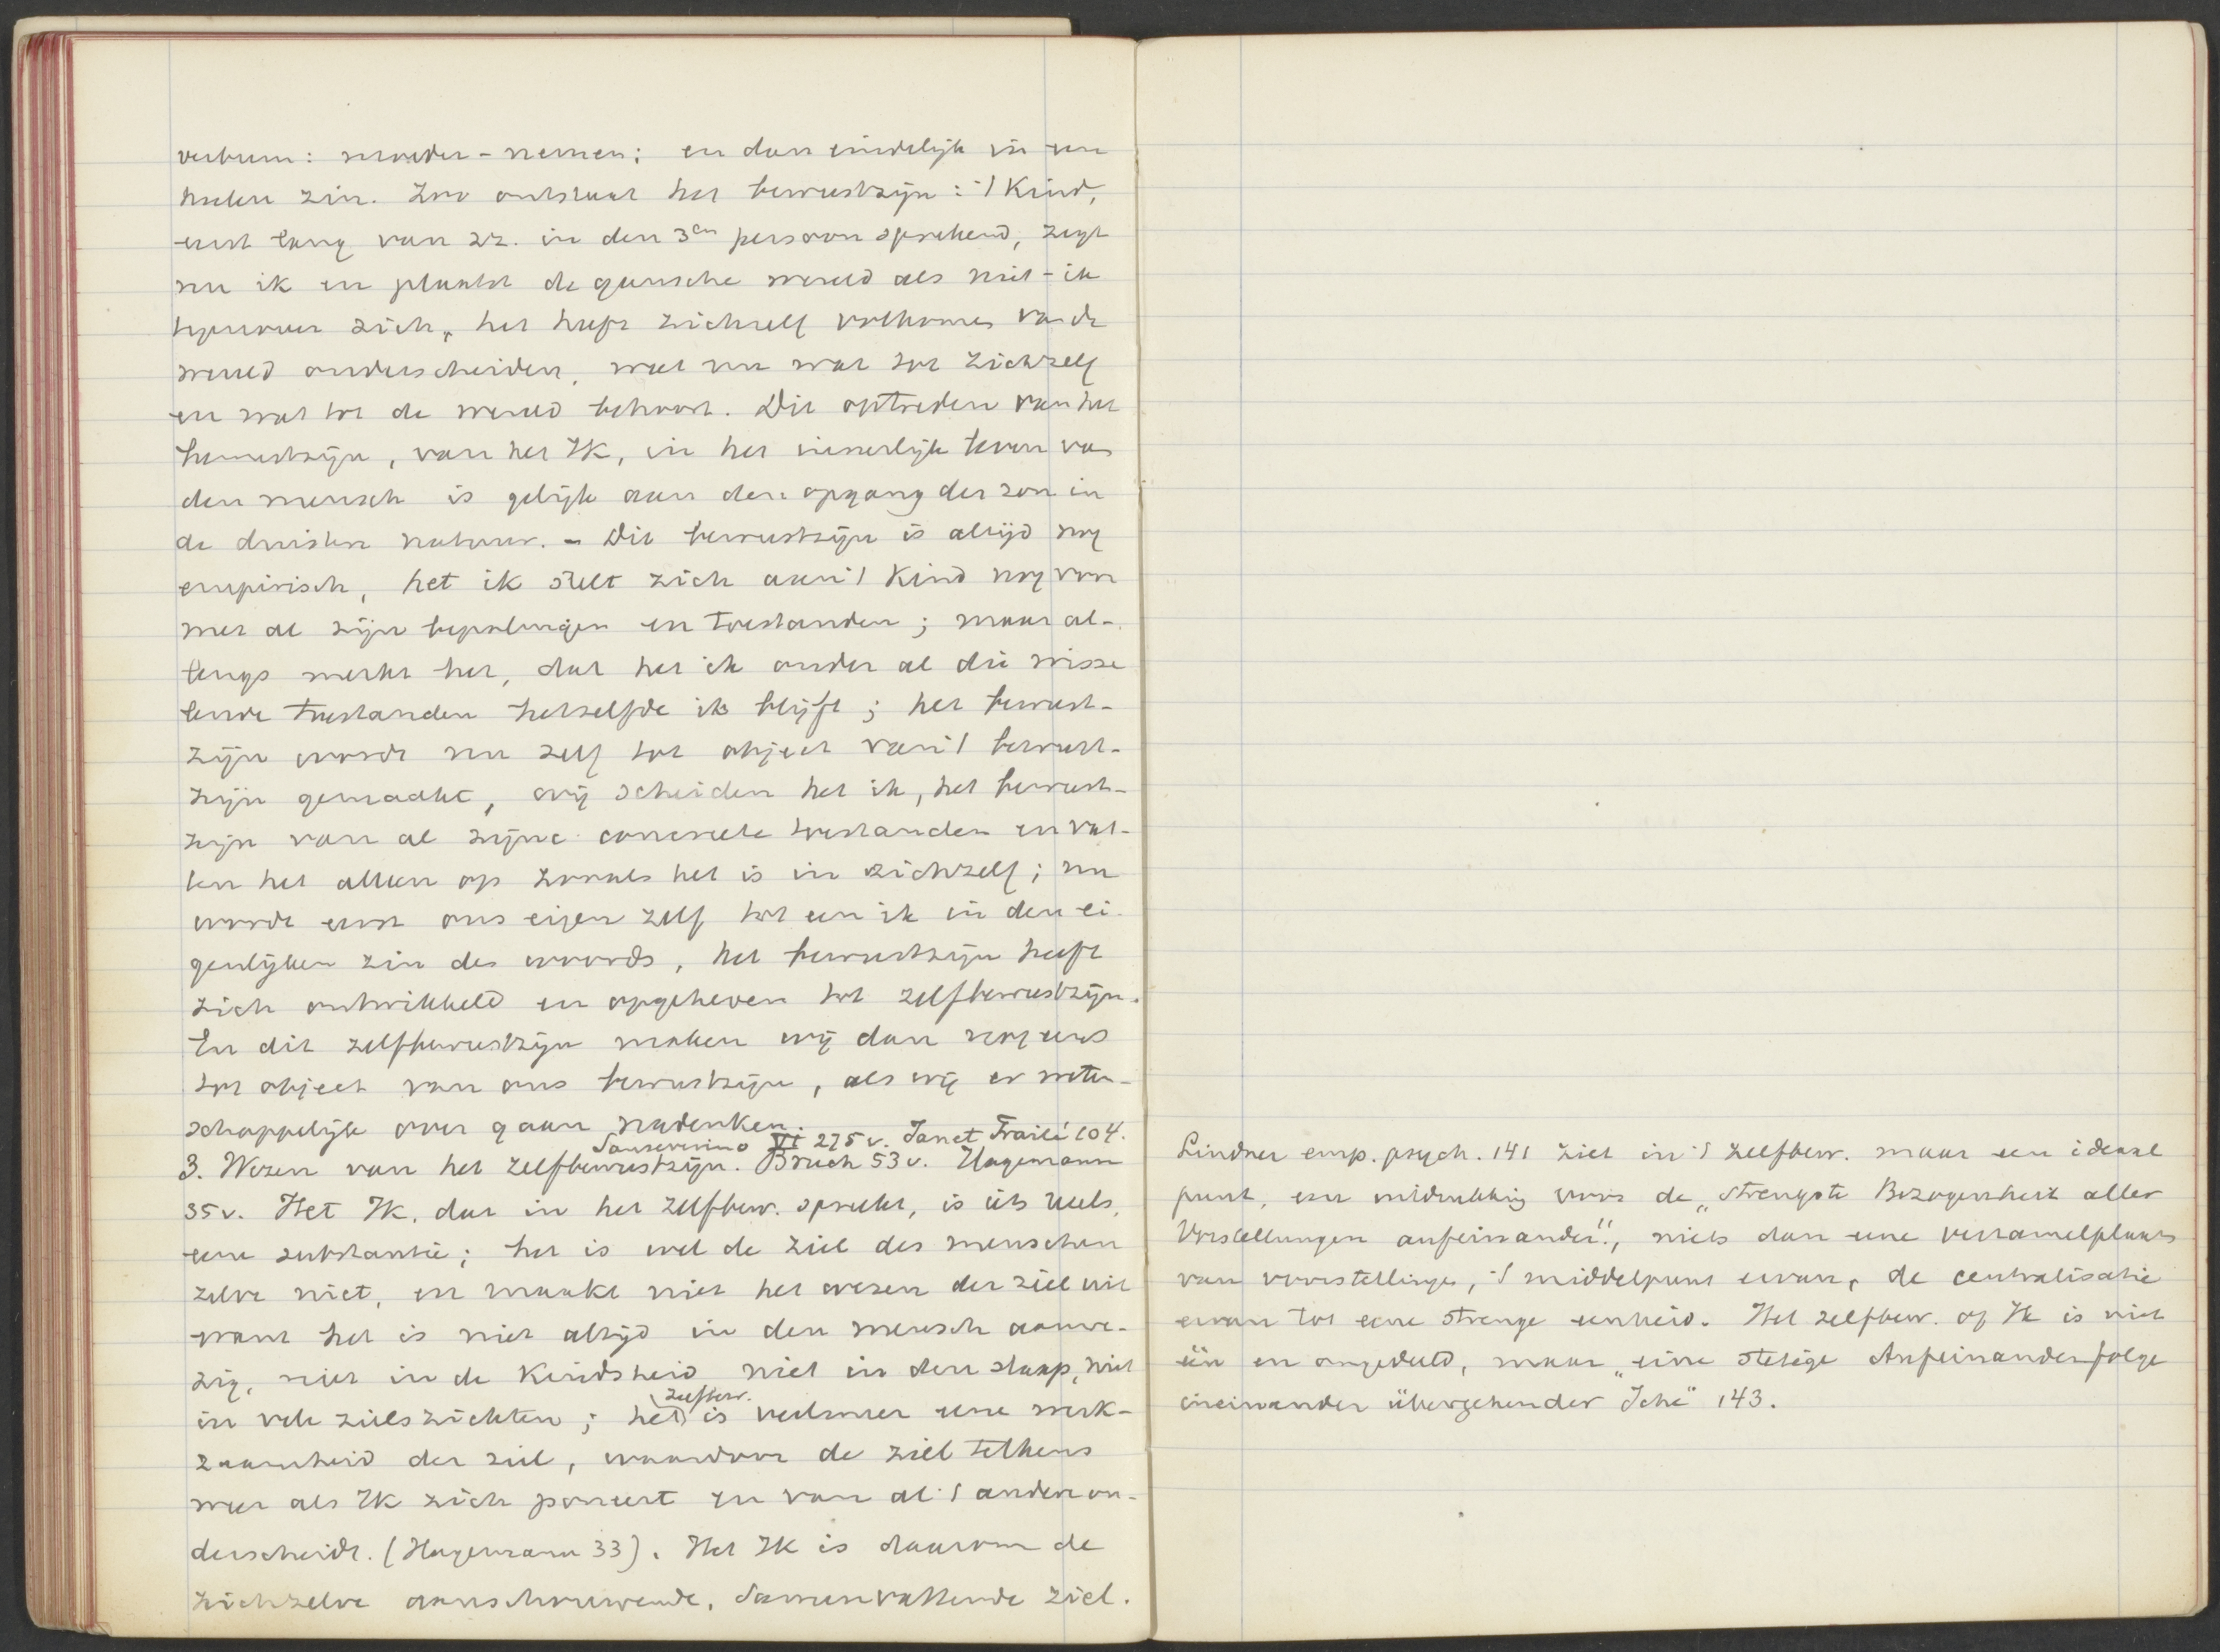 verbum: moeder-nemen; en dan eindelijk in een
heelen zin. Zoo ontstaat het bewustzijn: 't Kind,
eerst lang van zz. in den 3en persoon sprekend, zegt
nu ik en plaatst de gansche wereld als niet-ik
tegenover zich, het heeft zichzelf volkomen van de
wereld onderscheiden, weet nu wat tot zichzelf
en wat tot de wereld behoort. Dit optreden van het
bewustzijn, van het Ik, in het innerlijk leven van
den mensch is gelijk aan den opgang der zon in
de duistere natuur. - Dit bewustzijn is altijd nog
empirisch, het ik stelt zich aan 't Kind nog voor
met al zijn bepalingen en toestanden; maar al-
lengs merkt het, dat het ik onder al die wisse
lende toestanden hetzelfde ik blijft; het bewust-
zijn wordt nu zelf tot object van 't bewust-
zijn gemaakt, wij scheiden het ik, het bewust-
zijn van al zijne concrete toestanden en vat-
ten het alleen op zooals het is in zichzelf; nu
wordt eerst ons eigen zelf tot een ik in den ei-
genlijken zin des woords, het bewustzijn heeft
zich ontwikkeld en opgeheven tot zelfbewustzijn.
En dit zelfbewustzijn maken wij dan nog eens
tot object van ons bewustzijn, als wij er weten-
schappelijk over gaan nadenken.
Sanseverino VI 275 v. Janet Traité 104.
3. Wezen van het zelfbewustzijn. Bruch 53 v. Hagemann
35 v. Het Ik, dat in het zelfbew. spreekt, is iets reëels,
eene substantie; het is wel de ziel des menschen
zelve niet, en maakt niet het wezen der ziel uit
want het is niet altijd in den mensch aanwe-
zig, niet in de Kindsheid, niet in den slaap, niet
in vele zielsziekten; het zelfbew. is veelmeer eene werk-
zaamheid der ziel, waardoor de ziel telkens
weer als Ik zich poneert en van al 't andere on-
derscheidt. (Hagemann 33). Het Ik is daarom de
zichzelve aanschouwende, samenvattende ziel.
Lindner emp. psych. 141 ziet in 't zelfbew. maar een ideaal
punt, een uitdrukking voor de „strengste Bezogenheit aller
Vorstellungen aufeinander", niets dan eene verzamelplaats
van voorstellingen, 't middelpunt ervan, de centralisatie
ervan tot eene strenge eenheid. Het zelfbew. of Ik is niet
één en ongedeeld, maar „eine stetige Aufeinanderfolge
ineinander übergehender Iche" 143.